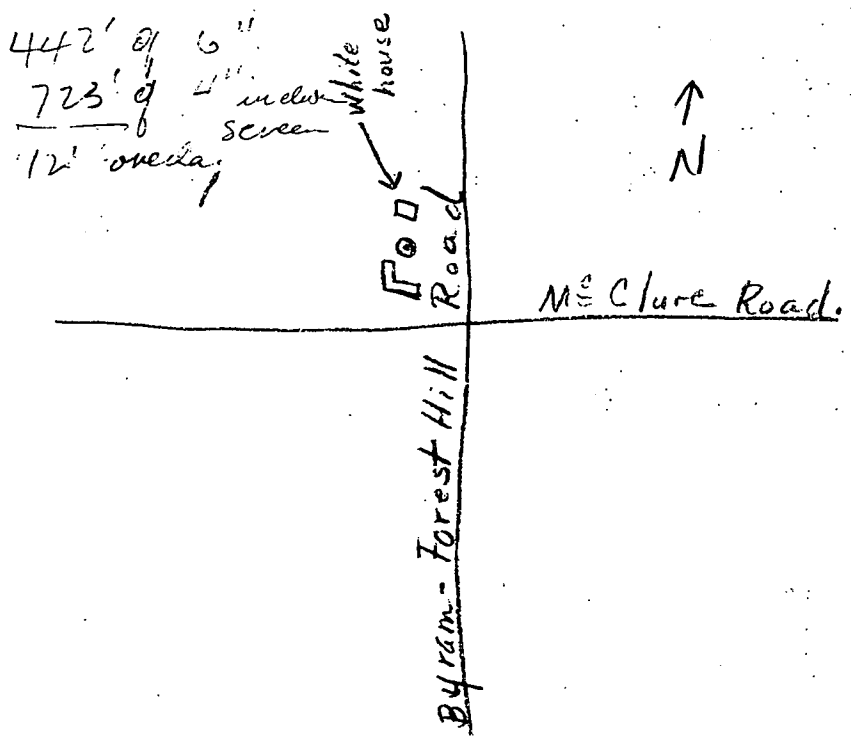 442' of 6"
723' of 4" includin screen
12' overla
White house
N
Mc Clure Road.
Byram - Forest Hill Road